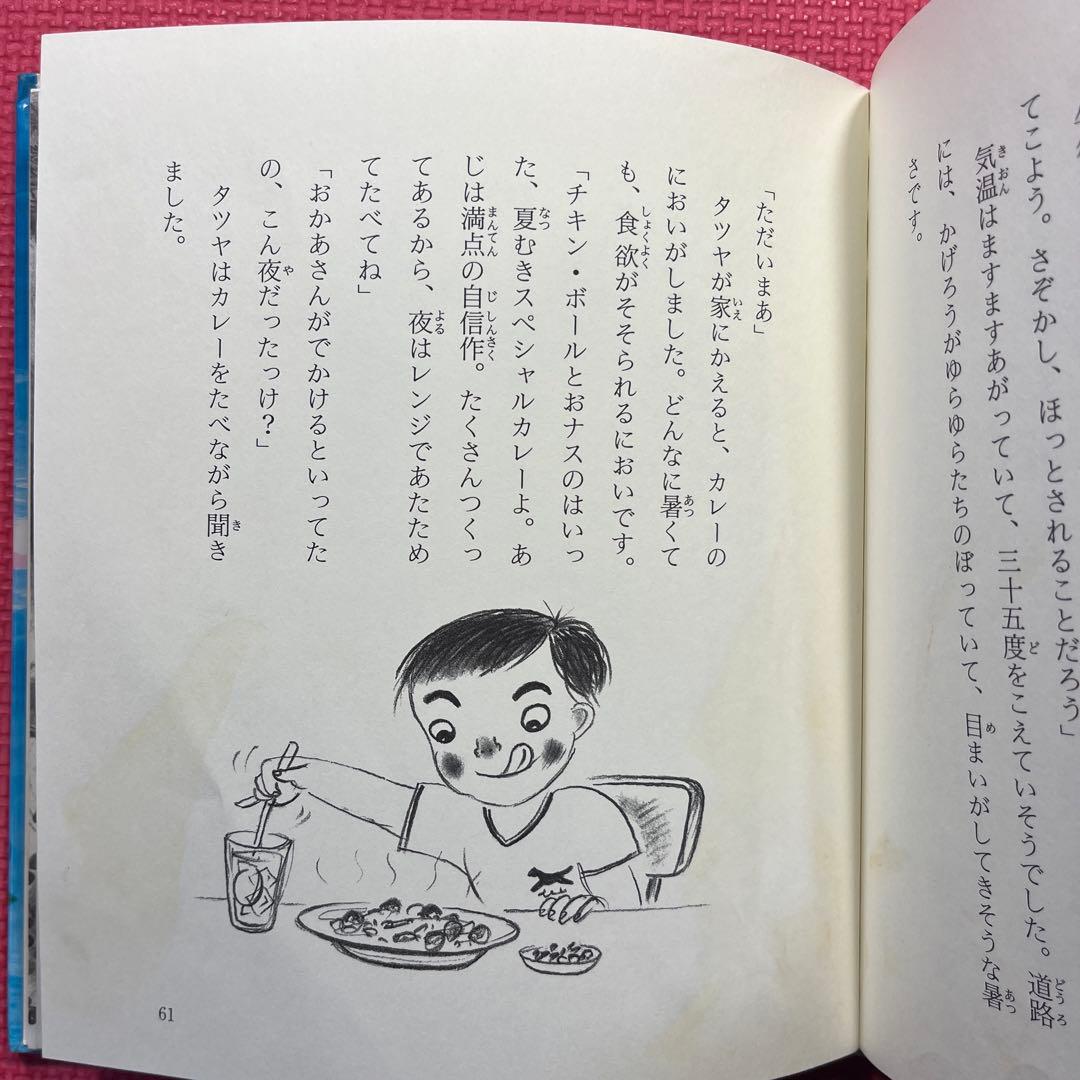 てこよう。さぞかし、ほっとされることだろう」
気温はますますあがっていて、三十五度をこえていそうでした。道路
には、かげろうがゆらゆらたちのぼっていて、目まいがしてきそうな暑
さです。
「ただいまあ」
タツヤが家にかえると、カレーの
においがしました。どんなに暑くて
も、食欲がそそられるにおいです。
「チキン・ボールとおナスのはいっ
た、夏むきスペシャルカレーよ。あ
じは満点の自信作。たくさんつくっ
てあるから、夜はレンジであたため
てたべてね」
「おかあさんがでかけるといってた
の、こん夜だったっけ?」
タツヤはカレーをたべながら聞き
ました。
61